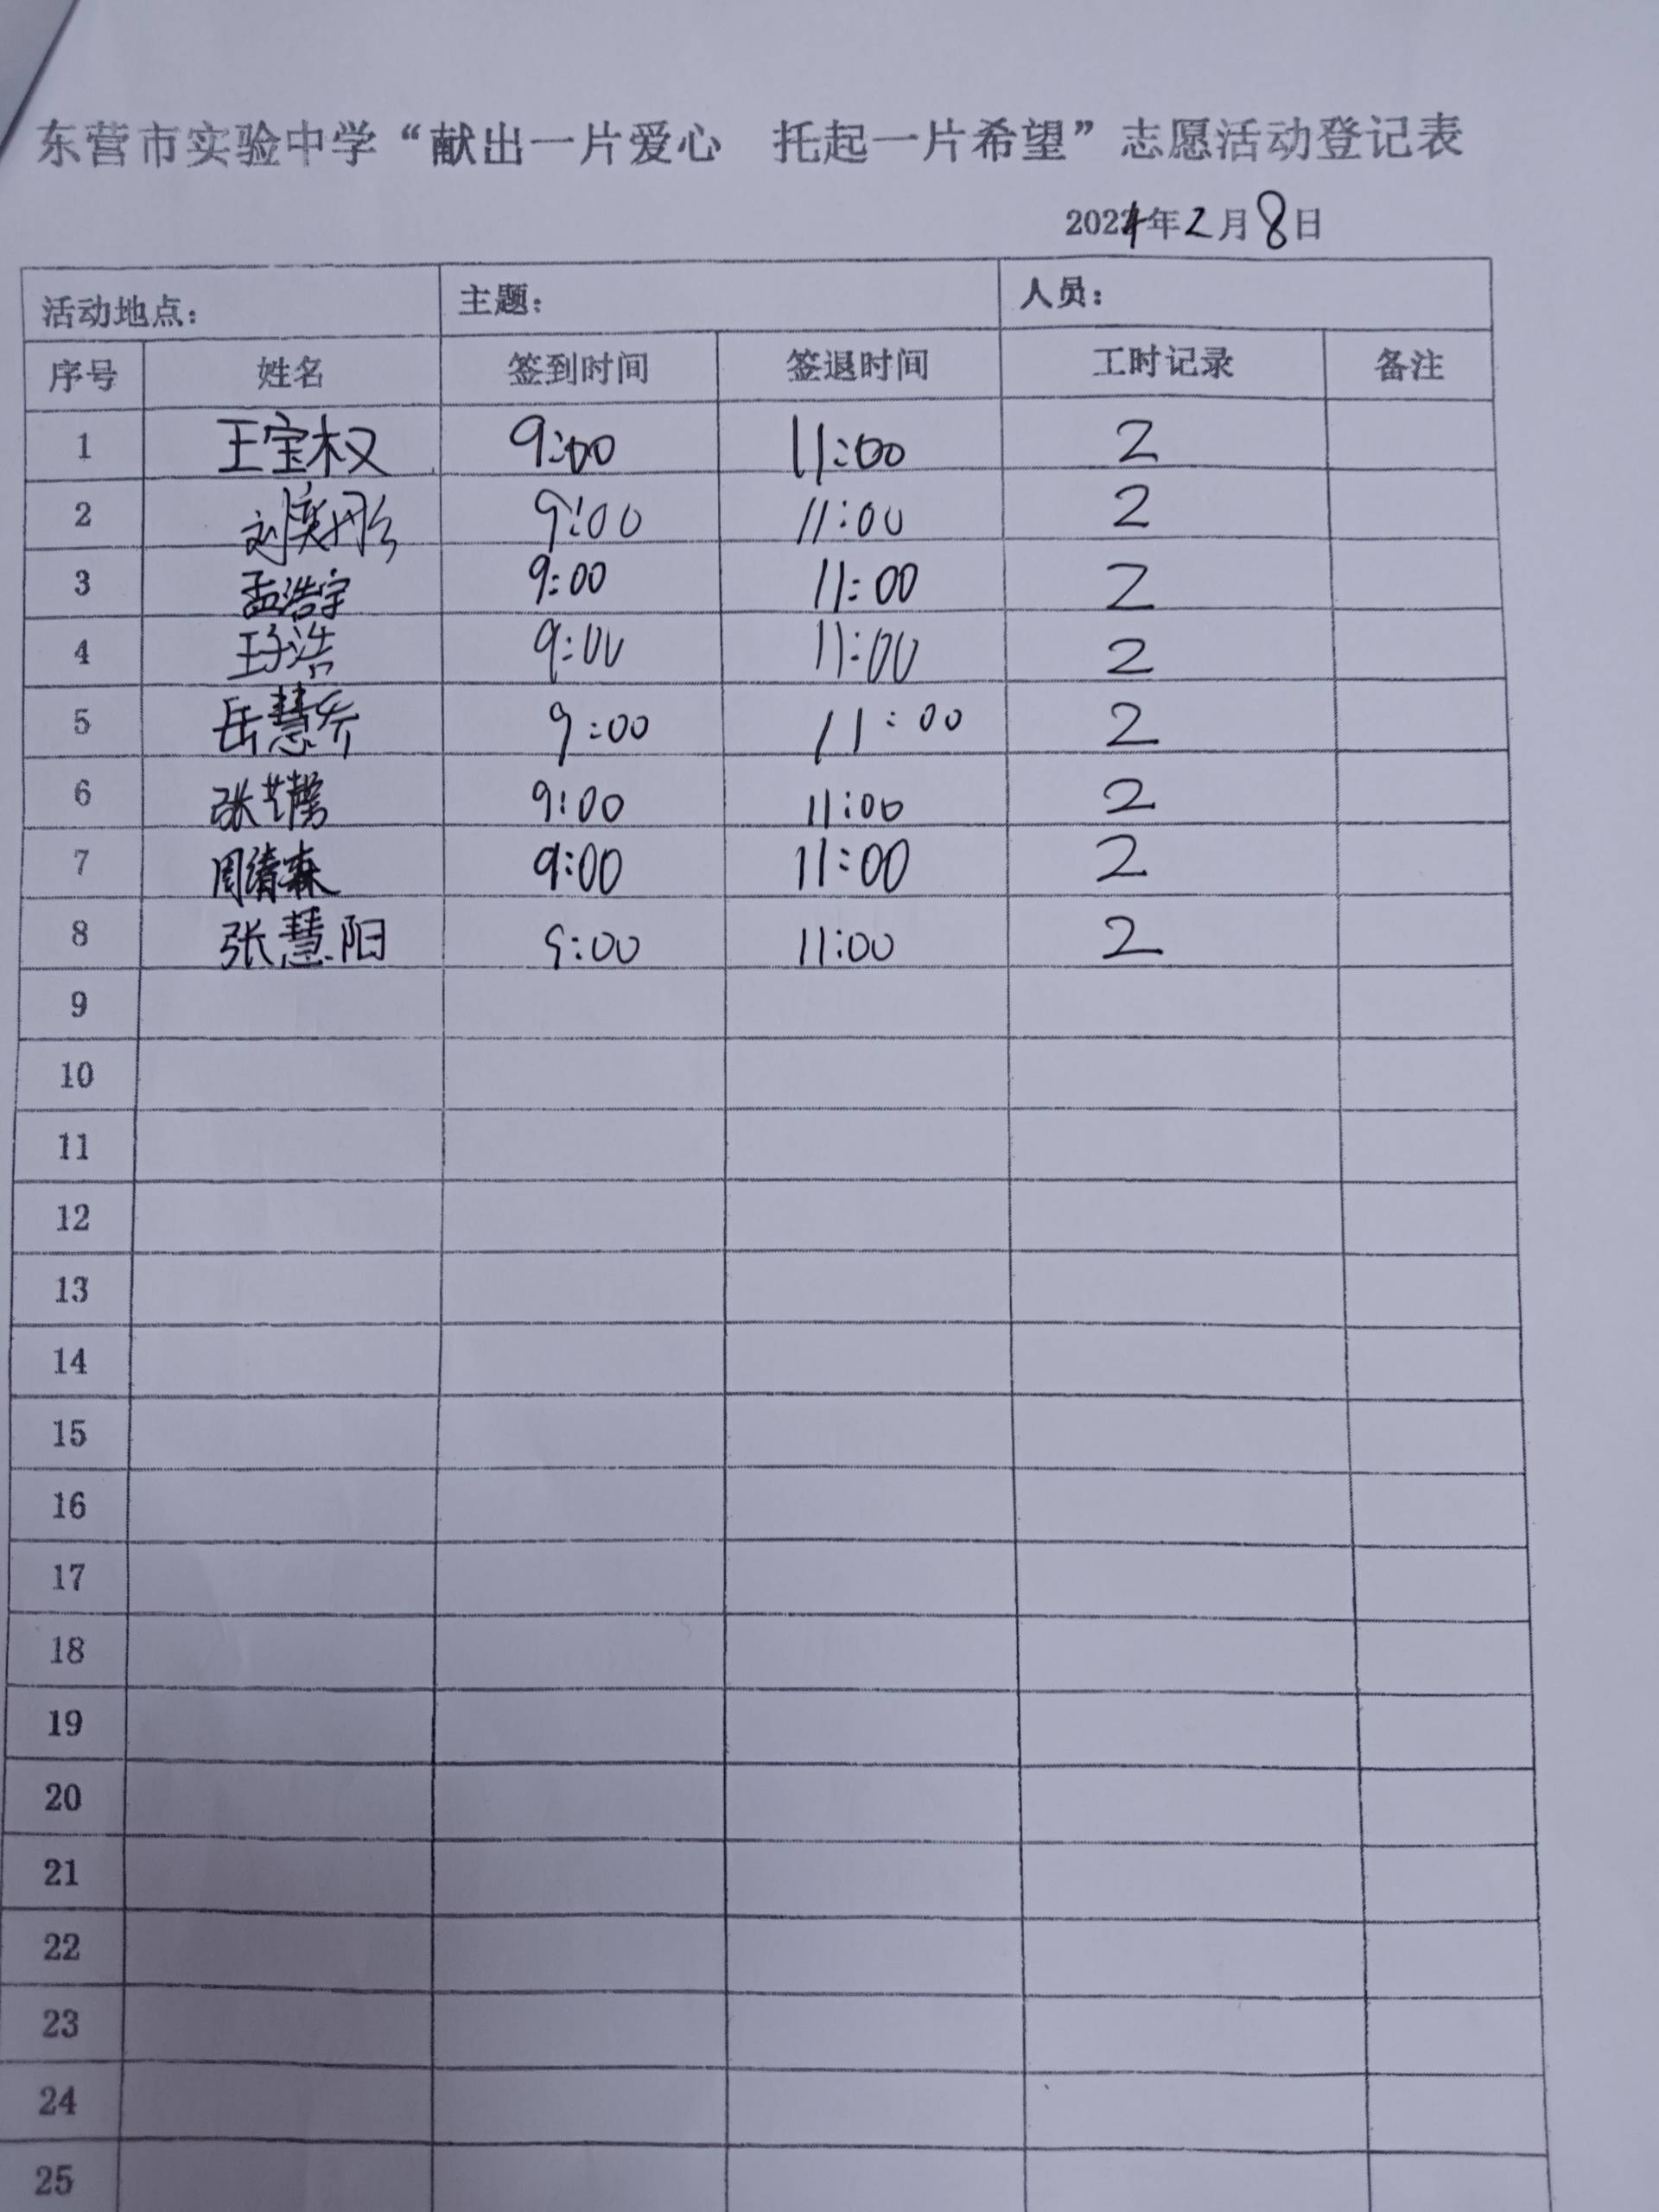 东营市实验中学“献出一片爱心 托起一片希望”志愿活动登记表
2024年2月8日
活动地点： 主题： 人员：
序号 姓名 签到时间 签退时间 工时记录 备注
1 王宝权 9:00 11:00 2
2 刘奕彤 9:00 11:00 2
3 孟浩宇 9:00 11:00 2
4 王子浩 9:00 11:00 2
5 岳慧乔 9:00 11:00 2
6 张艺馨 9:00 11:00 2
7 周清森 9:00 11:00 2
8 张慧阳 9:00 11:00 2
9
10
11
12
13
14
15
16
17
18
19
20
21
22
23
24
25